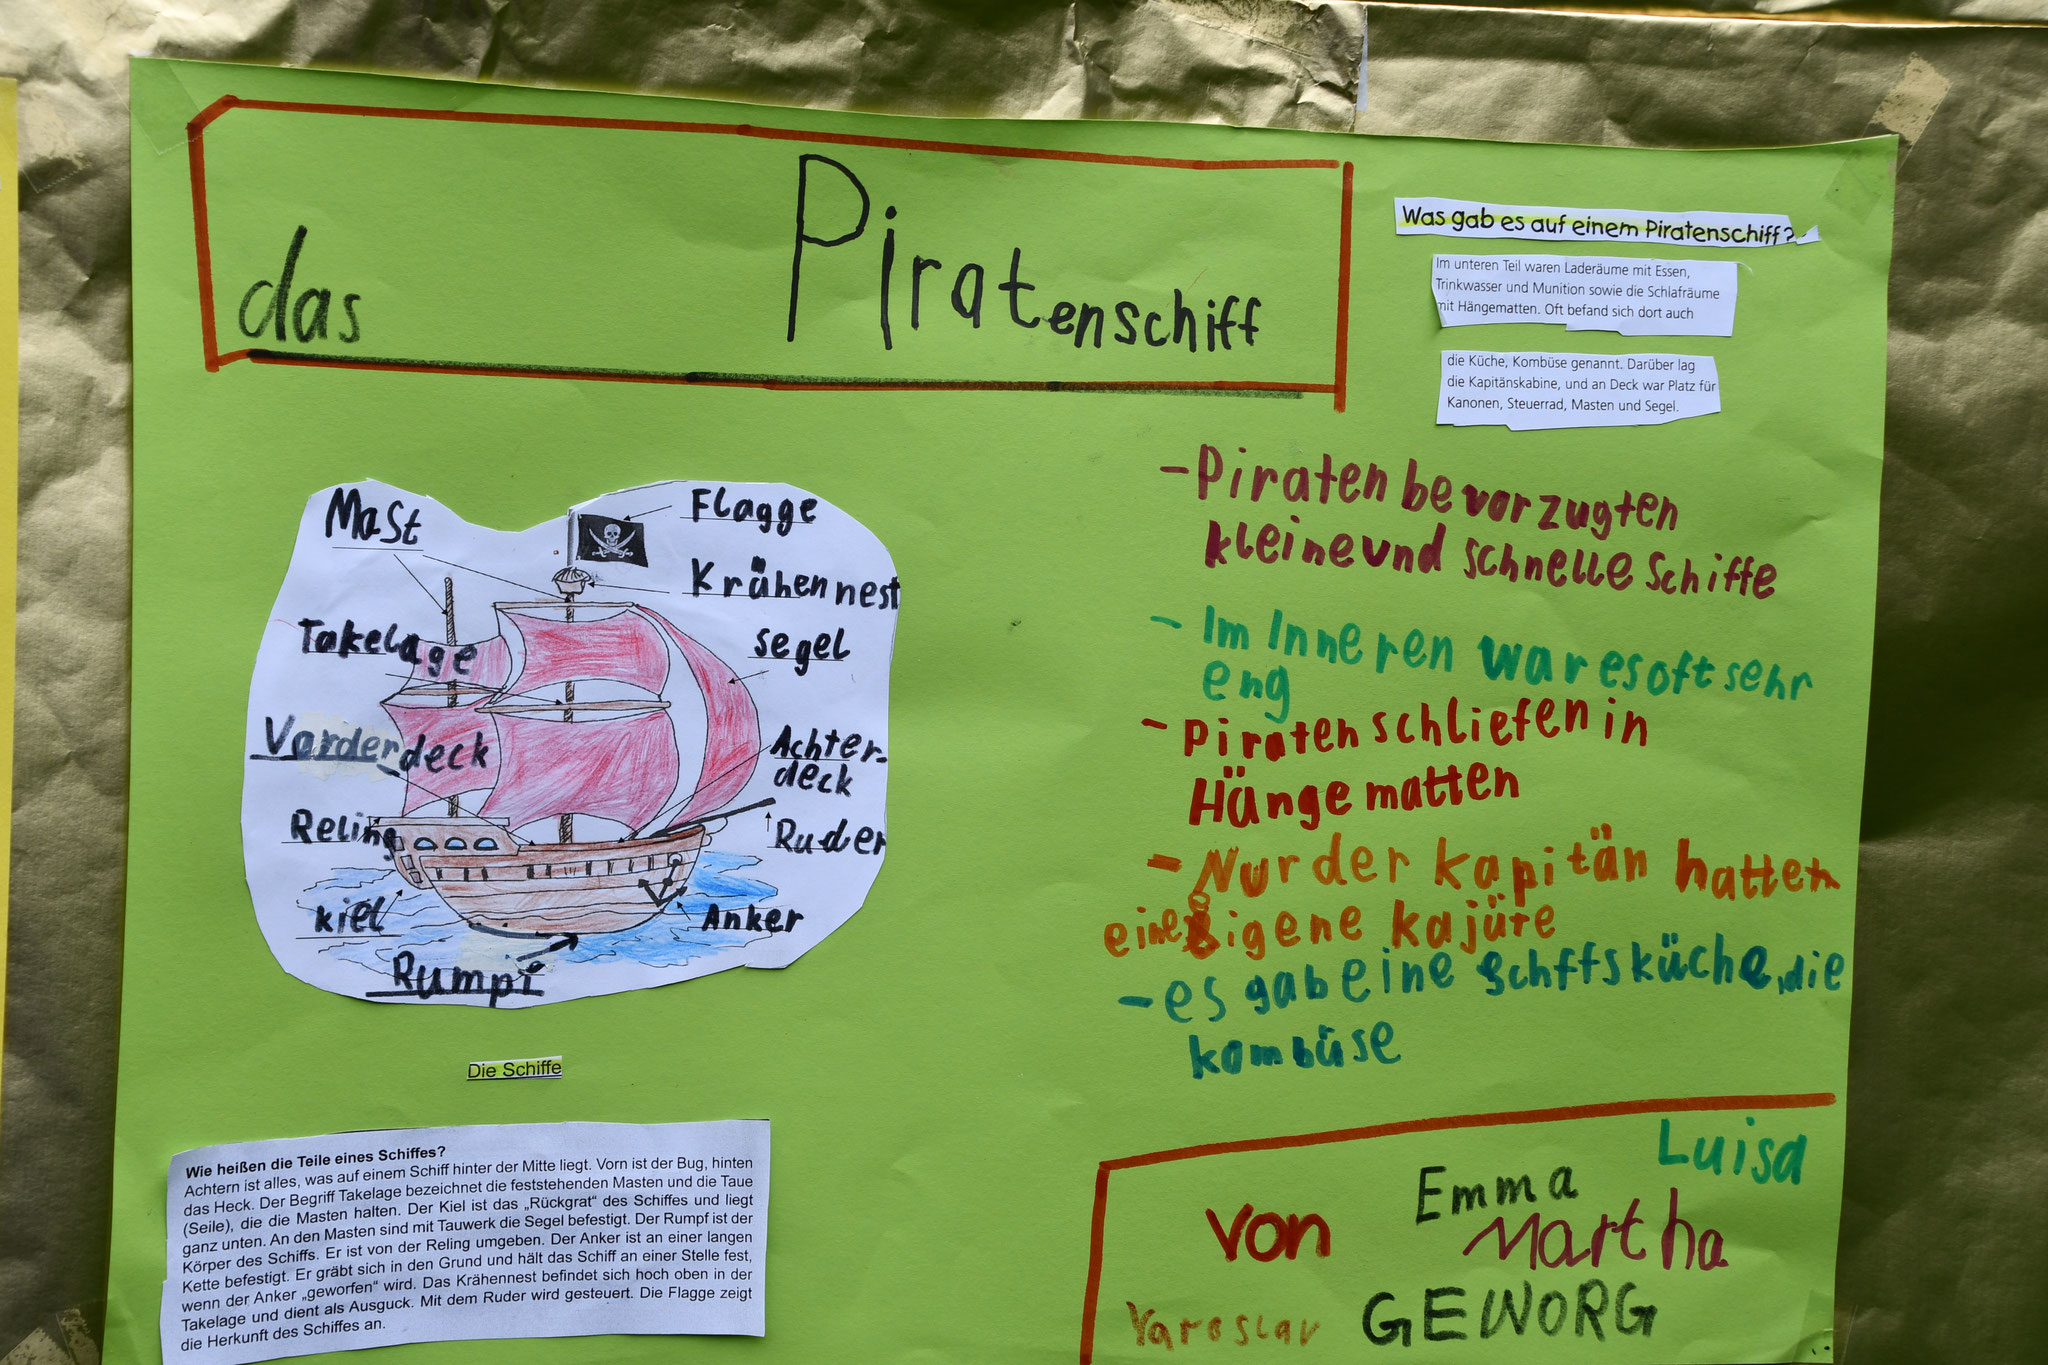 das Piratenschiff
Was gab es auf einem Piratenschiff?
Im unteren Teil waren Laderäume mit Essen,
Trinkwasser und Munition sowie die Schlafräume
mit Hängematten. Oft befand sich dort auch
die Küche, Kombüse genannt. Darüber lag
die Kapitänskabine, und an Deck war Platz für
Kanonen, Steuerrad, Masten und Segel.
- Piraten bevorzugten
kleine und schnelle Schiffe
- Im Inneren war es oft sehr
eng
- Piraten schliefen in
Hängematten
- Nur der Kapitän hatten
eine Eigene Kajüte
- es gab eine Schffsküche, die
Kombüse
Mast
Flagge
Krähennest
Takelage
segel
Vorderdeck
Achter-
deck
Reling
Ruder
kiel
Anker
Rumpf
Die Schiffe
Wie heißen die Teile eines Schiffes?
Achtern ist alles, was auf einem Schiff hinter der Mitte liegt. Vorn ist der Bug, hinten
das Heck. Der Begriff Takelage bezeichnet die feststehenden Masten und die Taue
(Seile), die die Masten halten. Der Kiel ist das „Rückgrat“ des Schiffes und liegt
ganz unten. An den Masten sind mit Tauwerk die Segel befestigt. Der Rumpf ist der
Körper des Schiffs. Er ist von der Reling umgeben. Der Anker ist an einer langen
Kette befestigt. Er gräbt sich in den Grund und hält das Schiff an einer Stelle fest,
wenn der Anker „geworfen“ wird. Das Krähennest befindet sich hoch oben in der
Takelage und dient als Ausguck. Mit dem Ruder wird gesteuert. Die Flagge zeigt
die Herkunft des Schiffes an.
Luisa
Emma
von Martha
Yaroslav GEWORG